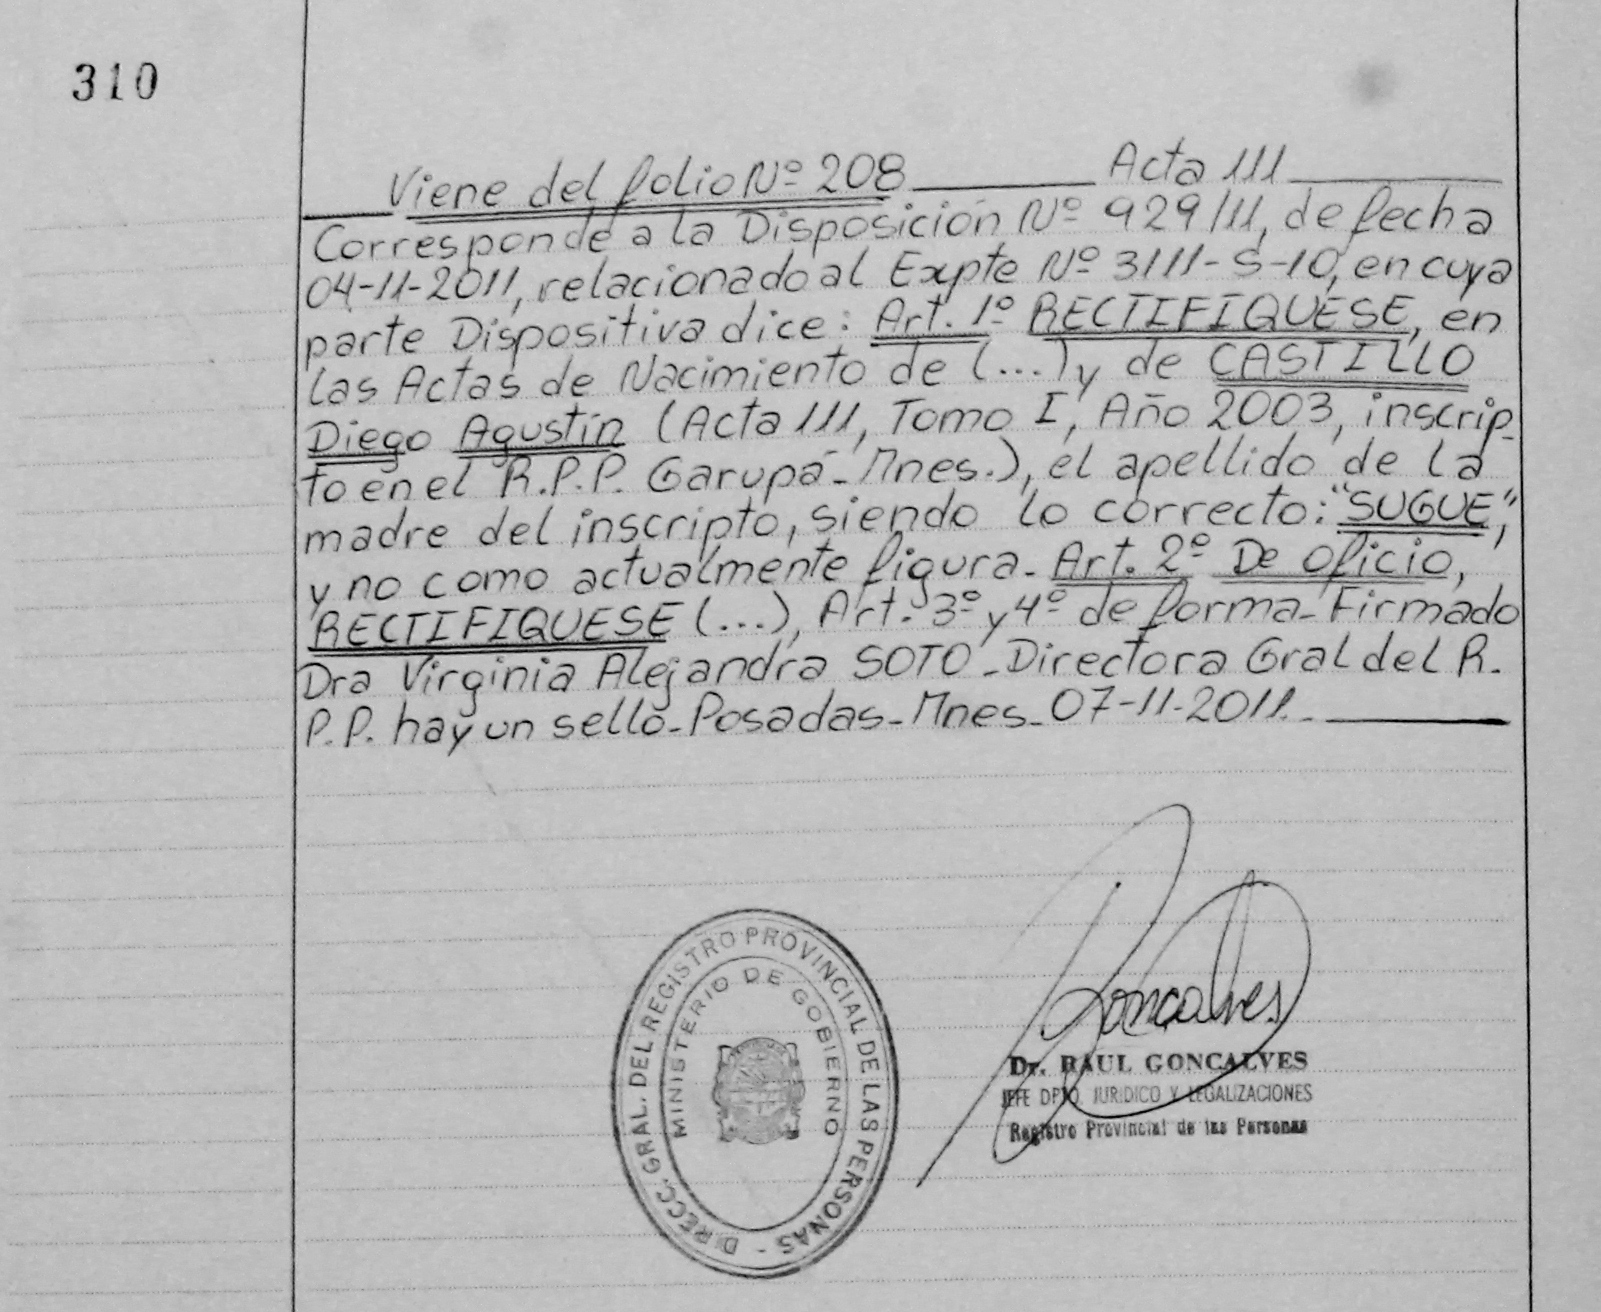 310
Viene del folio Nº 208 Acta 111
Corresponde a la Disposición Nº 929/11, de fecha
04-11-2011, relacionado al Expte Nº 3111-S-10, en cuya
parte Dispositiva dice: Art. 1º RECTIFIQUESE, en
las Actas de Nacimiento de (...) y de CASTILLO
Diego Agustín (Acta 111, Tomo I, Año 2003, inscrip-
to en el R.P.P. Garupá-Mnes.), el apellido de la
madre del inscripto, siendo lo correcto: "SUGUE",
y no como actualmente figura. Art. 2º De oficio,
RECTIFIQUESE (...), Art. 3º y 4º de forma-Firmado
Dra Virginia Alejandra SOTO-Directora Gral del R.
P.P. hay un sello-Posadas-Mnes-07-11-2011.
DIRECC. GRAL. DEL REGISTRO PROVINCIAL DE LAS PERSONAS -
MINISTERIO DE GOBIERNO
Goncalves
Dr. RAUL GONCALVES
JEFE DPTO. JURIDICO Y LEGALIZACIONES
Registro Provincial de las Personas